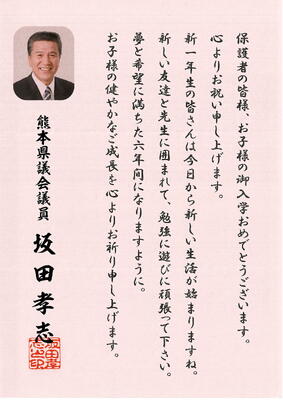 保護者の皆様、お子様の御入学おめでとうございます。
心よりお祝い申し上げます。
新一年生の皆さんは今日から新しい生活が始まりますね。
新しい友達と先生に囲まれて、勉強に遊びに頑張って下さい。
夢と希望に満ちた六年間になりますように。
お子様の健やかなご成長を心よりお祈り申し上げます。
熊本県議会議員
坂田孝志